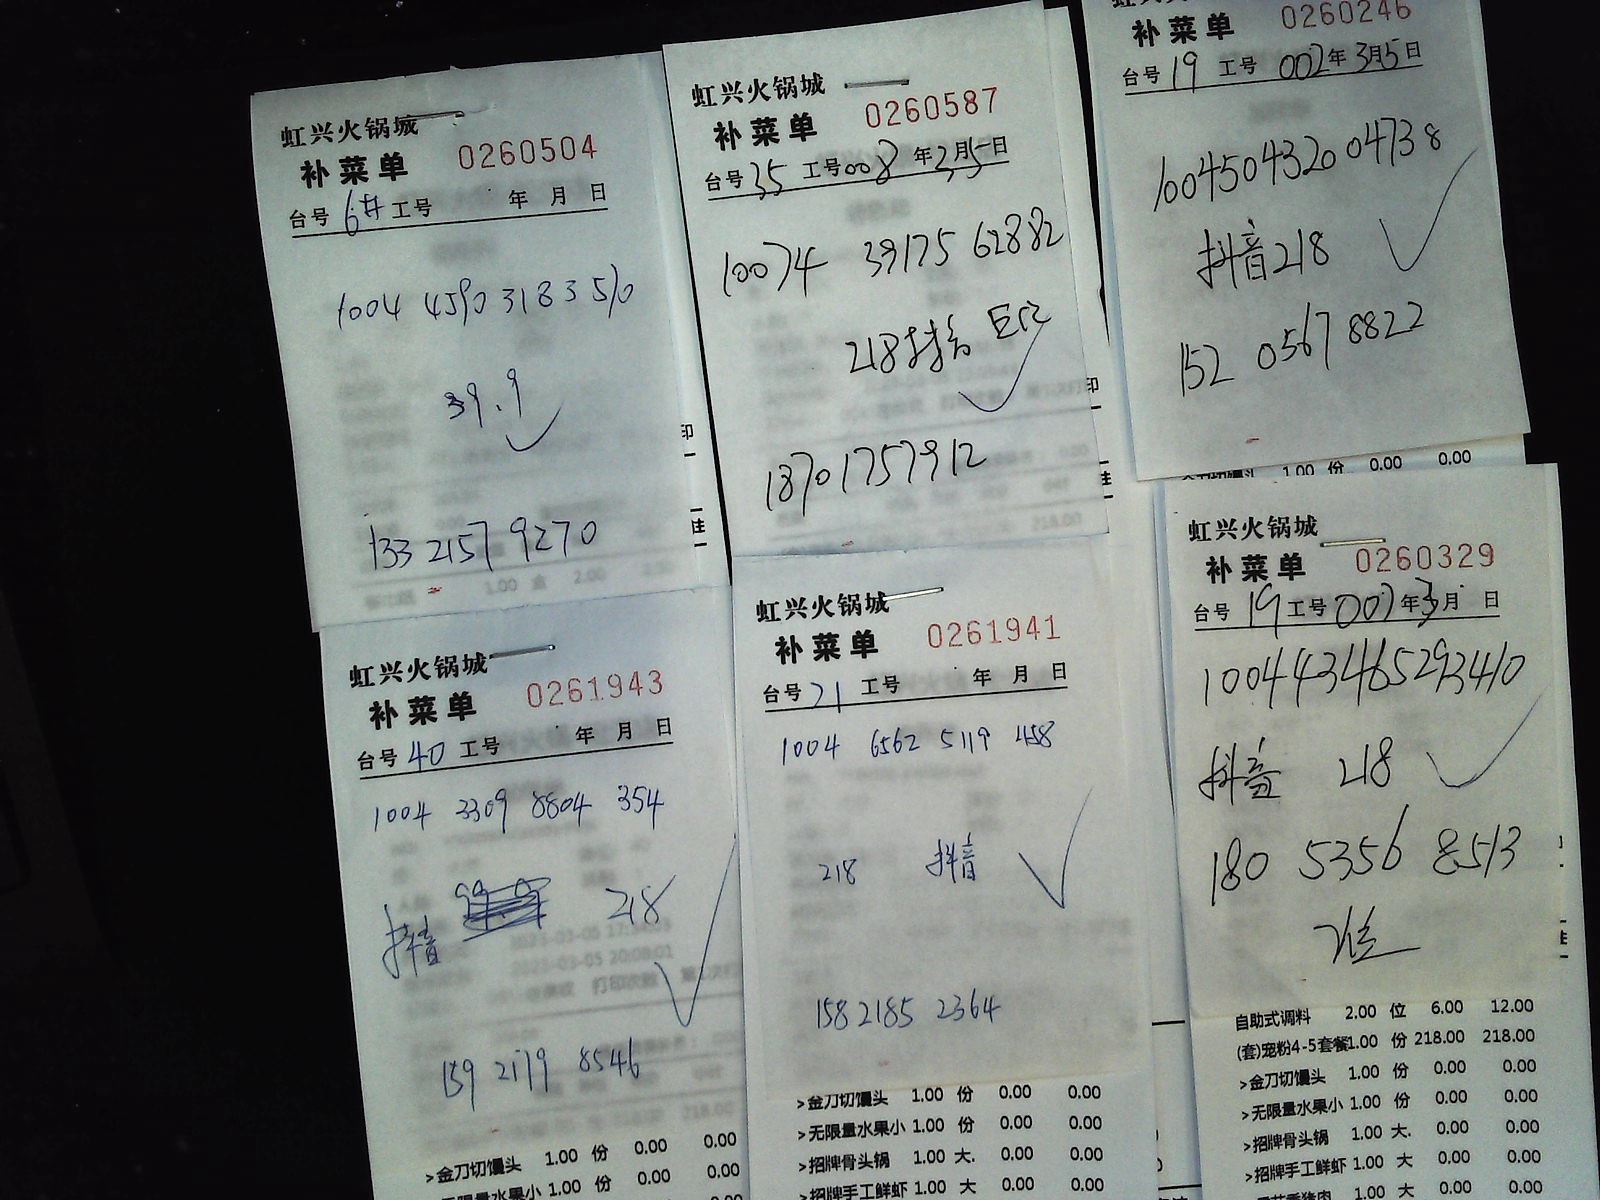 虹兴火锅城
补菜单 0260504
台号 6# 工号 年 月 日
1004 4590 3183 510
39.9
133 2157 9270
虹兴火锅城
补菜单 0260587
台号 35 工号 008 年 3月5日
10074 39175 62882
218抖音
18701757912
补菜单 0260246
台号 19 工号 002年 3月5日
100450432004738
抖音218
152 0567 8822
金刀切馒头 1.00 份 0.00 0.00
虹兴火锅城
补菜单 0261943
台号 40 工号 年 月 日
1004 3309 8804 354
抖音 218
159 2179 8546
>金刀切馒头 1.00 份 0.00 0.00
无限量水果小 1.00 份 0.00 0.00
虹兴火锅城
补菜单 0261941
台号 21 工号 年 月 日
1004 6562 5119 458
218 抖音
158 2185 2364
>金刀切馒头 1.00 份 0.00 0.00
>无限量水果小 1.00 份 0.00 0.00
>招牌骨头锅 1.00 大. 0.00 0.00
>招牌手工鲜虾 1.00 大 0.00 0.00
虹兴火锅城
补菜单 0260329
台号 19 工号 002年 3月 日
100443465293410
抖音 218
180 5356 8513
自助式调料 2.00 位 6.00 12.00
(套)宠粉4-5套餐1.00 份 218.00 218.00
>金刀切馒头 1.00 份 0.00 0.00
>无限量水果小 1.00 份 0.00 0.00
>招牌骨头锅 1.00 大. 0.00 0.00
>招牌手工鲜虾 1.00 大 0.00 0.00
1.00 大 0.00 0.00